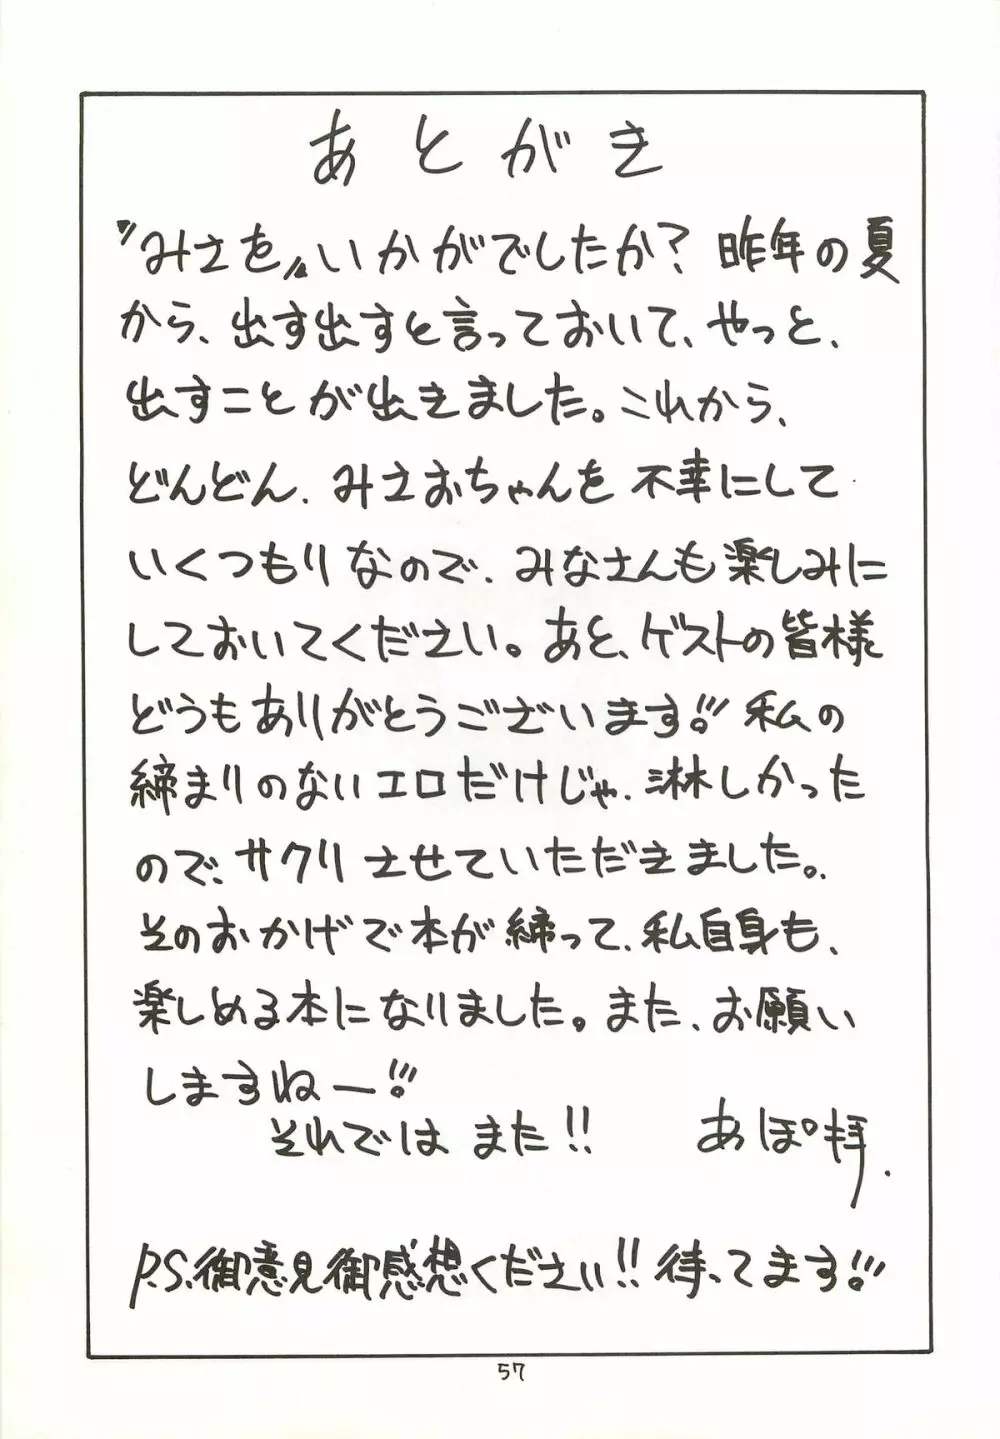 あとがき
〝みさを〟いかがでしたか？昨年の夏
から、出す出すと言っておいて、やっと、
出すことが出きました。これから、
どんどん、みさおちゃんを不幸にして
いくつもりなので、みなさんも楽しみに
しておいてください。あと、ゲストの皆様
どうもありがとうございます!!! 私の
締まりのないエロだけじゃ、淋しかった
ので、サクリさせていただきました。
そのおかげで本が締って、私自身も、
楽しめる本になりました。また、お願い
しますねー!!!
それでは また!!
あぽ拝.
P.S.御意見御感想ください!! 待ってます!!!
57